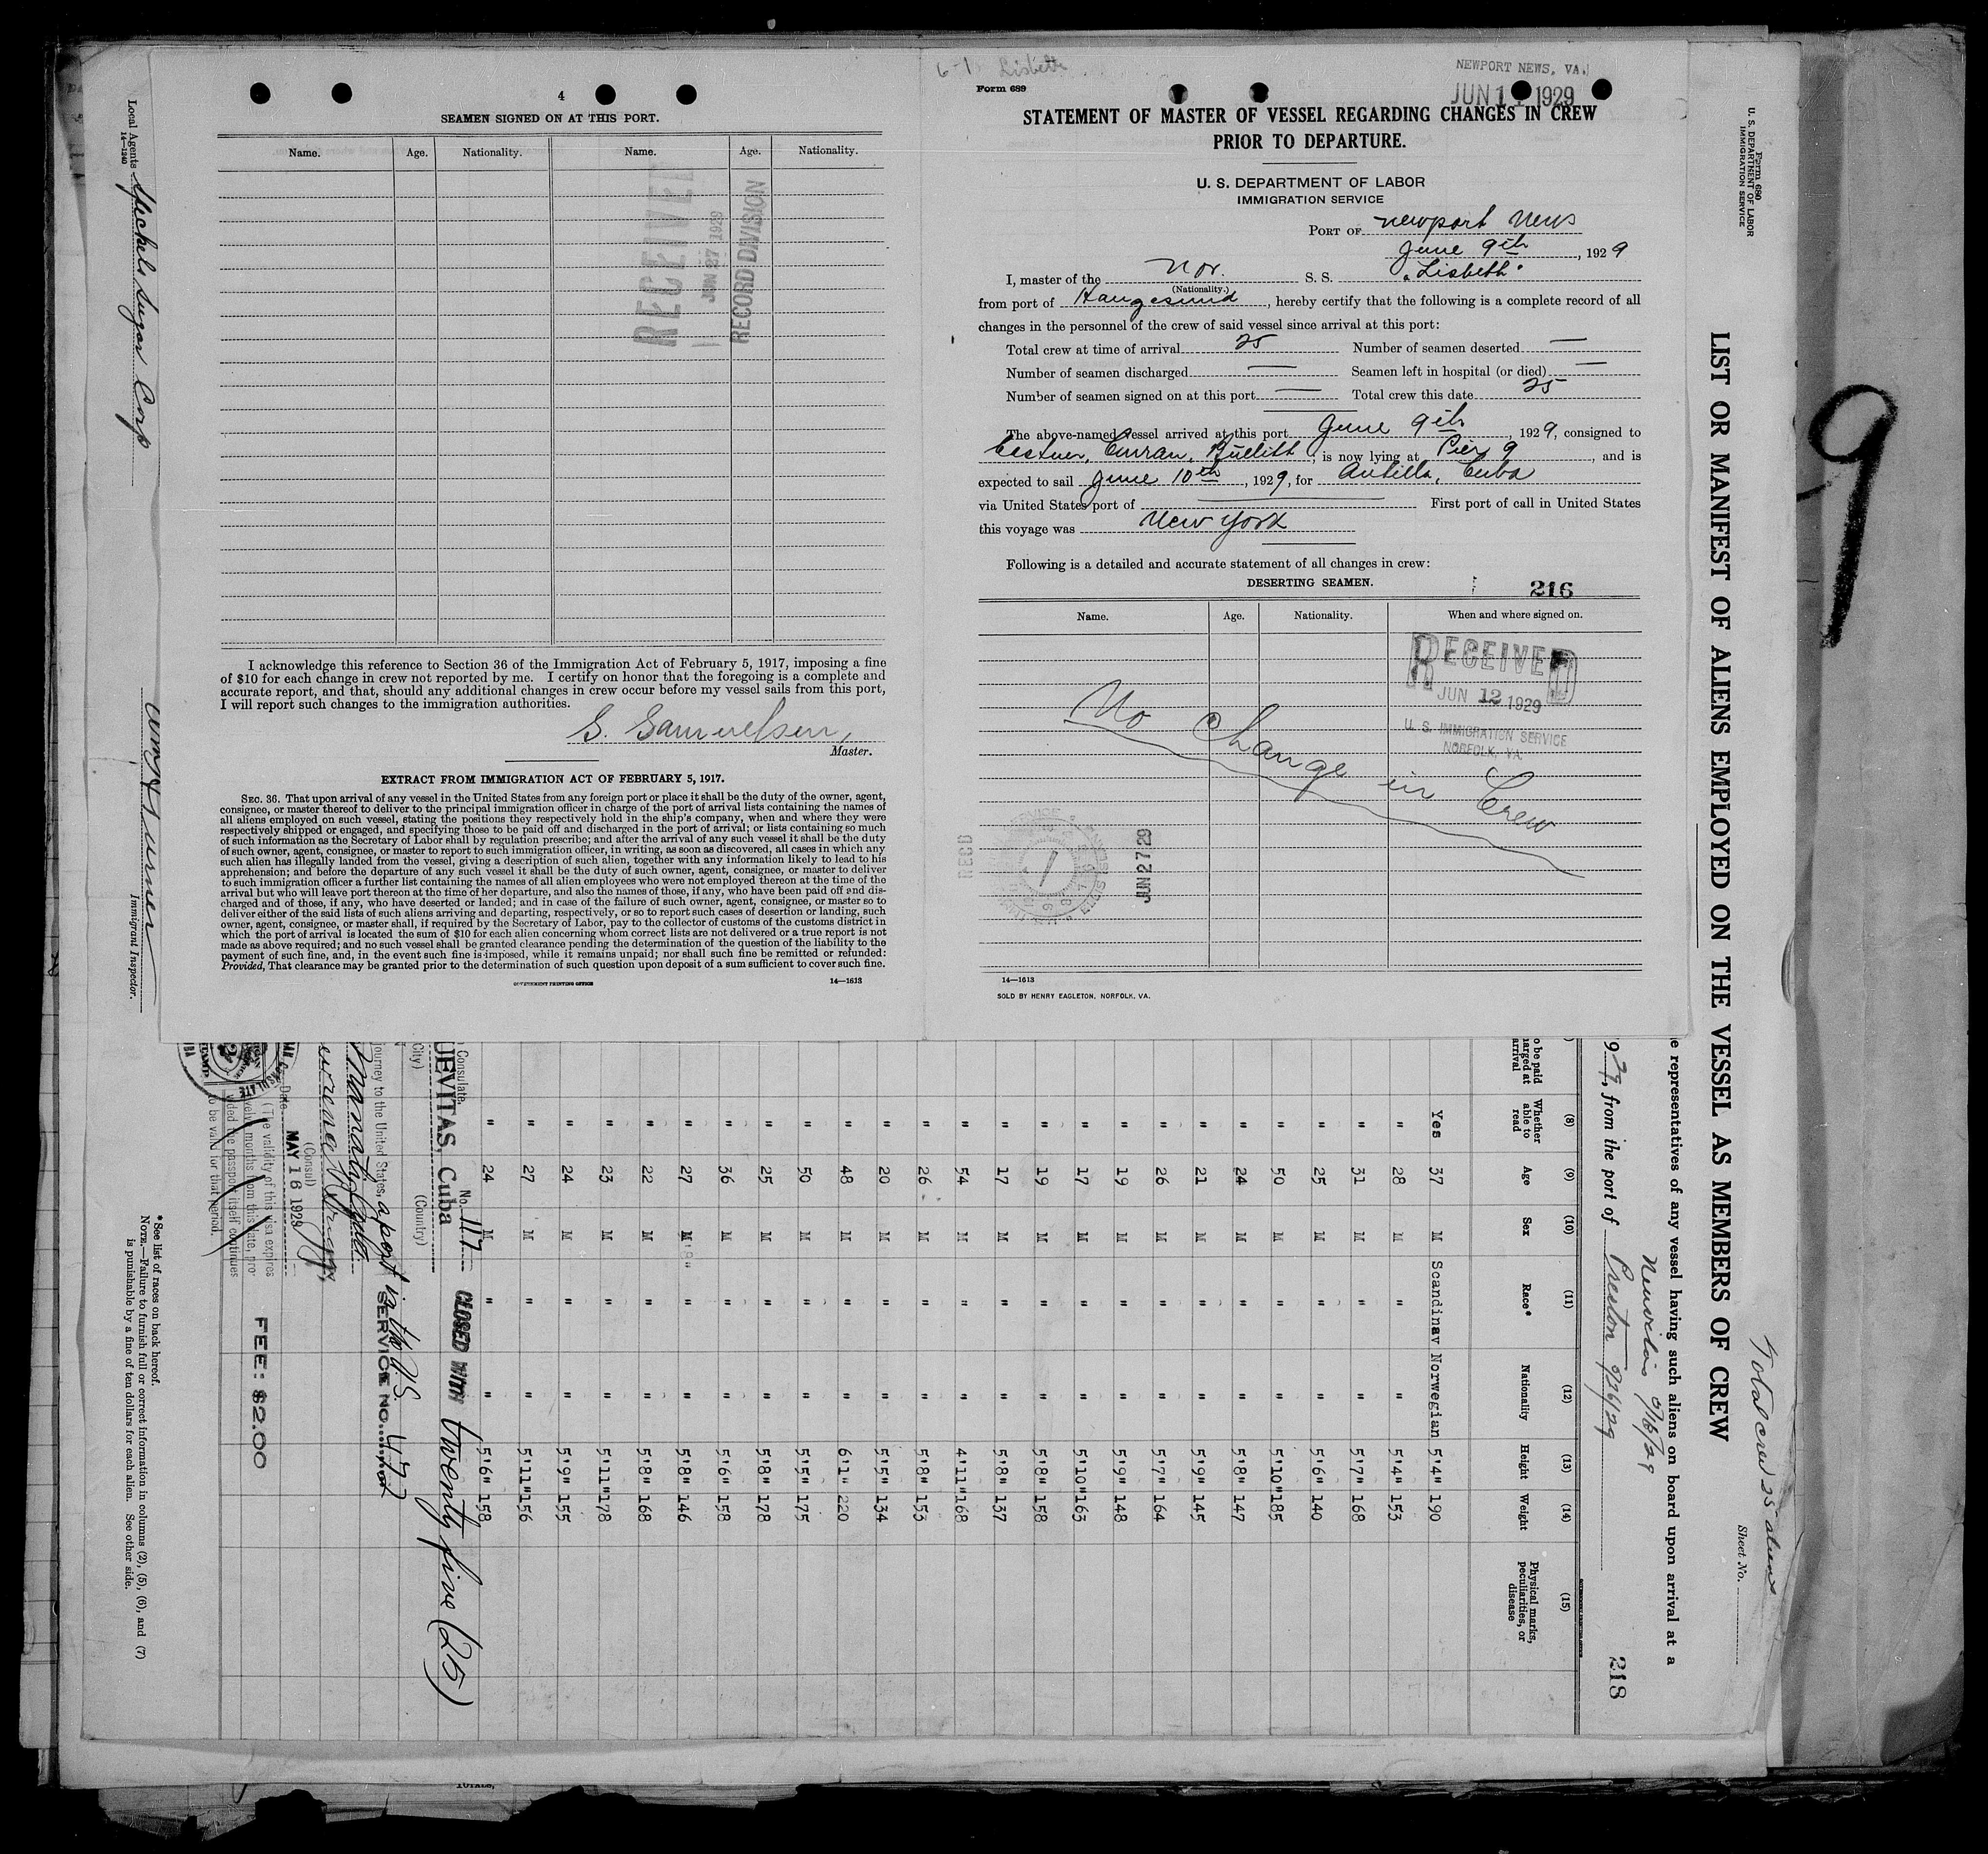 4
SEAMEN SIGNED ON AT THIS PORT.
Name. Age. Nationality. Name. Age. Nationality.
RECEIVED
JUN 27 1929
RECORD DIVISION
I acknowledge this reference to Section 36 of the Immigration Act of February 5, 1917, imposing a fine
of $10 for each change in crew not reported by me. I certify on honor that the foregoing is a complete and
accurate report, and that, should any additional changes in crew occur before my vessel sails from this port,
I will report such changes to the immigration authorities.
G. Samuelsen,
Master.
EXTRACT FROM IMMIGRATION ACT OF FEBRUARY 5, 1917.
SEC. 36. That upon arrival of any vessel in the United States from any foreign port or place it shall be the duty of the owner, agent,
consignee, or master thereof to deliver to the principal immigration officer in charge of the port of arrival lists containing the names of
all aliens employed on such vessel, stating the positions they respectively hold in the ship's company, when and where they were
respectively shipped or engaged, and specifying those to be paid off and discharged in the port of arrival; or lists containing so much
of such information as the Secretary of Labor shall by regulation prescribe; and after the arrival of any such vessel it shall be the duty
of such owner, agent, consignee, or master to report to such immigration officer, in writing, as soon as discovered, all cases in which any
such alien has illegally landed from the vessel, giving a description of such alien, together with any information likely to lead to his
apprehension; and before the departure of any such vessel it shall be the duty of such owner, agent, consignee, or master to deliver
to such immigration officer a further list containing the names of all alien employees who were not employed thereon at the time of the
arrival but who will leave port thereon at the time of her departure, and also the names of those, if any, who have been paid off and dis-
charged and of those, if any, who have deserted or landed; and in case of the failure of such owner, agent, consignee, or master so to
deliver either of the said lists of such aliens arriving and departing, respectively, or so to report such cases of desertion or landing, such
owner, agent, consignee, or master shall, if required by the Secretary of Labor, pay to the collector of customs of the customs district in
which the port of arrival is located the sum of $10 for each alien concerning whom correct lists are not delivered or a true report is not
made as above required; and no such vessel shall be granted clearance pending the determination of the question of the liability to the
payment of such fine, and, in the event such fine is imposed, while it remains unpaid; nor shall such fine be remitted or refunded:
Provided, That clearance may be granted prior to the determination of such question upon deposit of a sum sufficient to cover such fine.
GOVERNMENT PRINTING OFFICE 14—1613
6-1 Lisbeth
Form 689
NEWPORT NEWS, VA.
JUN 1 1929
STATEMENT OF MASTER OF VESSEL REGARDING CHANGES IN CREW
PRIOR TO DEPARTURE.
U. S. DEPARTMENT OF LABOR
IMMIGRATION SERVICE
PORT OF Newport News
June 9th, 1929
I, master of the Nor. S. S. "Lisbeth"
(Nationality.)
from port of Haugesund, hereby certify that the following is a complete record of all
changes in the personnel of the crew of said vessel since arrival at this port:
Total crew at time of arrival 25 Number of seamen deserted —
Number of seamen discharged — Seamen left in hospital (or died) —
Number of seamen signed on at this port — Total crew this date 25
The above-named vessel arrived at this port June 9th, 1929, consigned to
Castner, Curran, Bullitt, is now lying at Pier 9, and is
expected to sail June 10th, 1929, for Antilla, Cuba
via United States port of — First port of call in United States
this voyage was New York
Following is a detailed and accurate statement of all changes in crew:
DESERTING SEAMEN. 216
Name. Age. Nationality. When and where signed on.
RECEIVED
JUN 12 1929
U. S. IMMIGRATION SERVICE
NORFOLK, VA.
No change in Crew
REC'D
JUN 27 29
14—1613
SOLD BY HENRY EAGLETON, NORFOLK, VA.
9
Form 680
U. S. DEPARTMENT OF LABOR
IMMIGRATION SERVICE
LIST OR MANIFEST OF ALIENS EMPLOYED ON THE VESSEL AS MEMBERS OF CREW
Total crew 25 aliens
Sheet No.
e representatives of any vessel having such aliens on board upon arrival at a
929, from the port of Preston
218
o be paid
arged at
arrival
(8) Whether able to read
(9) Age
(10) Sex
(11) Race*
(12) Nationality
(13) Height
(14) Weight
(15) Physical marks, peculiarities, or disease
Yes 37 M Scandinav Norwegian 5'4" 190
" 28 M " " 5'4" 153
" 31 M " " 5'7" 168
" 25 M " " 5'6" 140
" 50 M " " 5'10" 185
" 24 M " " 5'8" 147
" 21 M " " 5'9" 145
" 26 M " " 5'7" 164
" 19 M " " 5'9" 148
" 17 M " " 5'10" 163
" 19 M " " 5'8" 158
" 17 M " " 5'8" 137
" 54 M " " 4'11" 168
" 26 M " " 5'8" 153
" 20 M " " 5'5" 134
" 48 M " " 6'1" 220
" 50 M " " 5'5" 175
" 25 M " " 5'8" 178
" 36 M " " 5'6" 158
" 27 M " " 5'8" 146
" 22 M " " 5'8" 168
" 23 M " " 5'11" 178
" 24 M " " 5'9" 155
" 27 M " " 5'11" 156
" 24 M " " 5'6" 158
Consulate. No. 117 CLOSED WITH twenty five (25)
UEVITAS, Cuba
(City) (Country)
journey to the United States, a port in the U.S.
SERVICE NO. 477
(Consul)
Date MAY 16 1929
(The validity of this visa expires
velve months from this date, pro-
vided the passport itself continues
to be valid for that period.
FEE: $2.00
* See list of races on back hereof.
NOTE.—Failure to furnish full or correct information in columns (2), (5), (6), and (7)
is punishable by a fine of ten dollars for each alien. See other side.
Local Agents Spreckels Sugar Corp
14—1240
Immigrant Inspector.